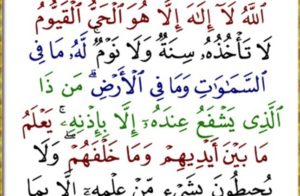 ٱللَّهُ لَآ إِلَٰهَ إِلَّا هُوَ ٱلْحَىُّ ٱلْقَيُّومُ
لَا تَأْخُذُهُۥ سِنَةٌ وَلَا نَوْمٌ ۚ لَّهُۥ مَا فِى
ٱلسَّمَٰوَٰتِ وَمَا فِى ٱلْأَرْضِ ۗ مَن ذَا
ٱلَّذِى يَشْفَعُ عِندَهُۥٓ إِلَّا بِإِذْنِهِۦ ۚ يَعْلَمُ
مَا بَيْنَ أَيْدِيهِمْ وَمَا خَلْفَهُمْ ۖ وَلَا
يُحِيطُونَ بِشَىْءٍ مِّنْ عِلْمِهِۦٓ إِلَّا بِمَا